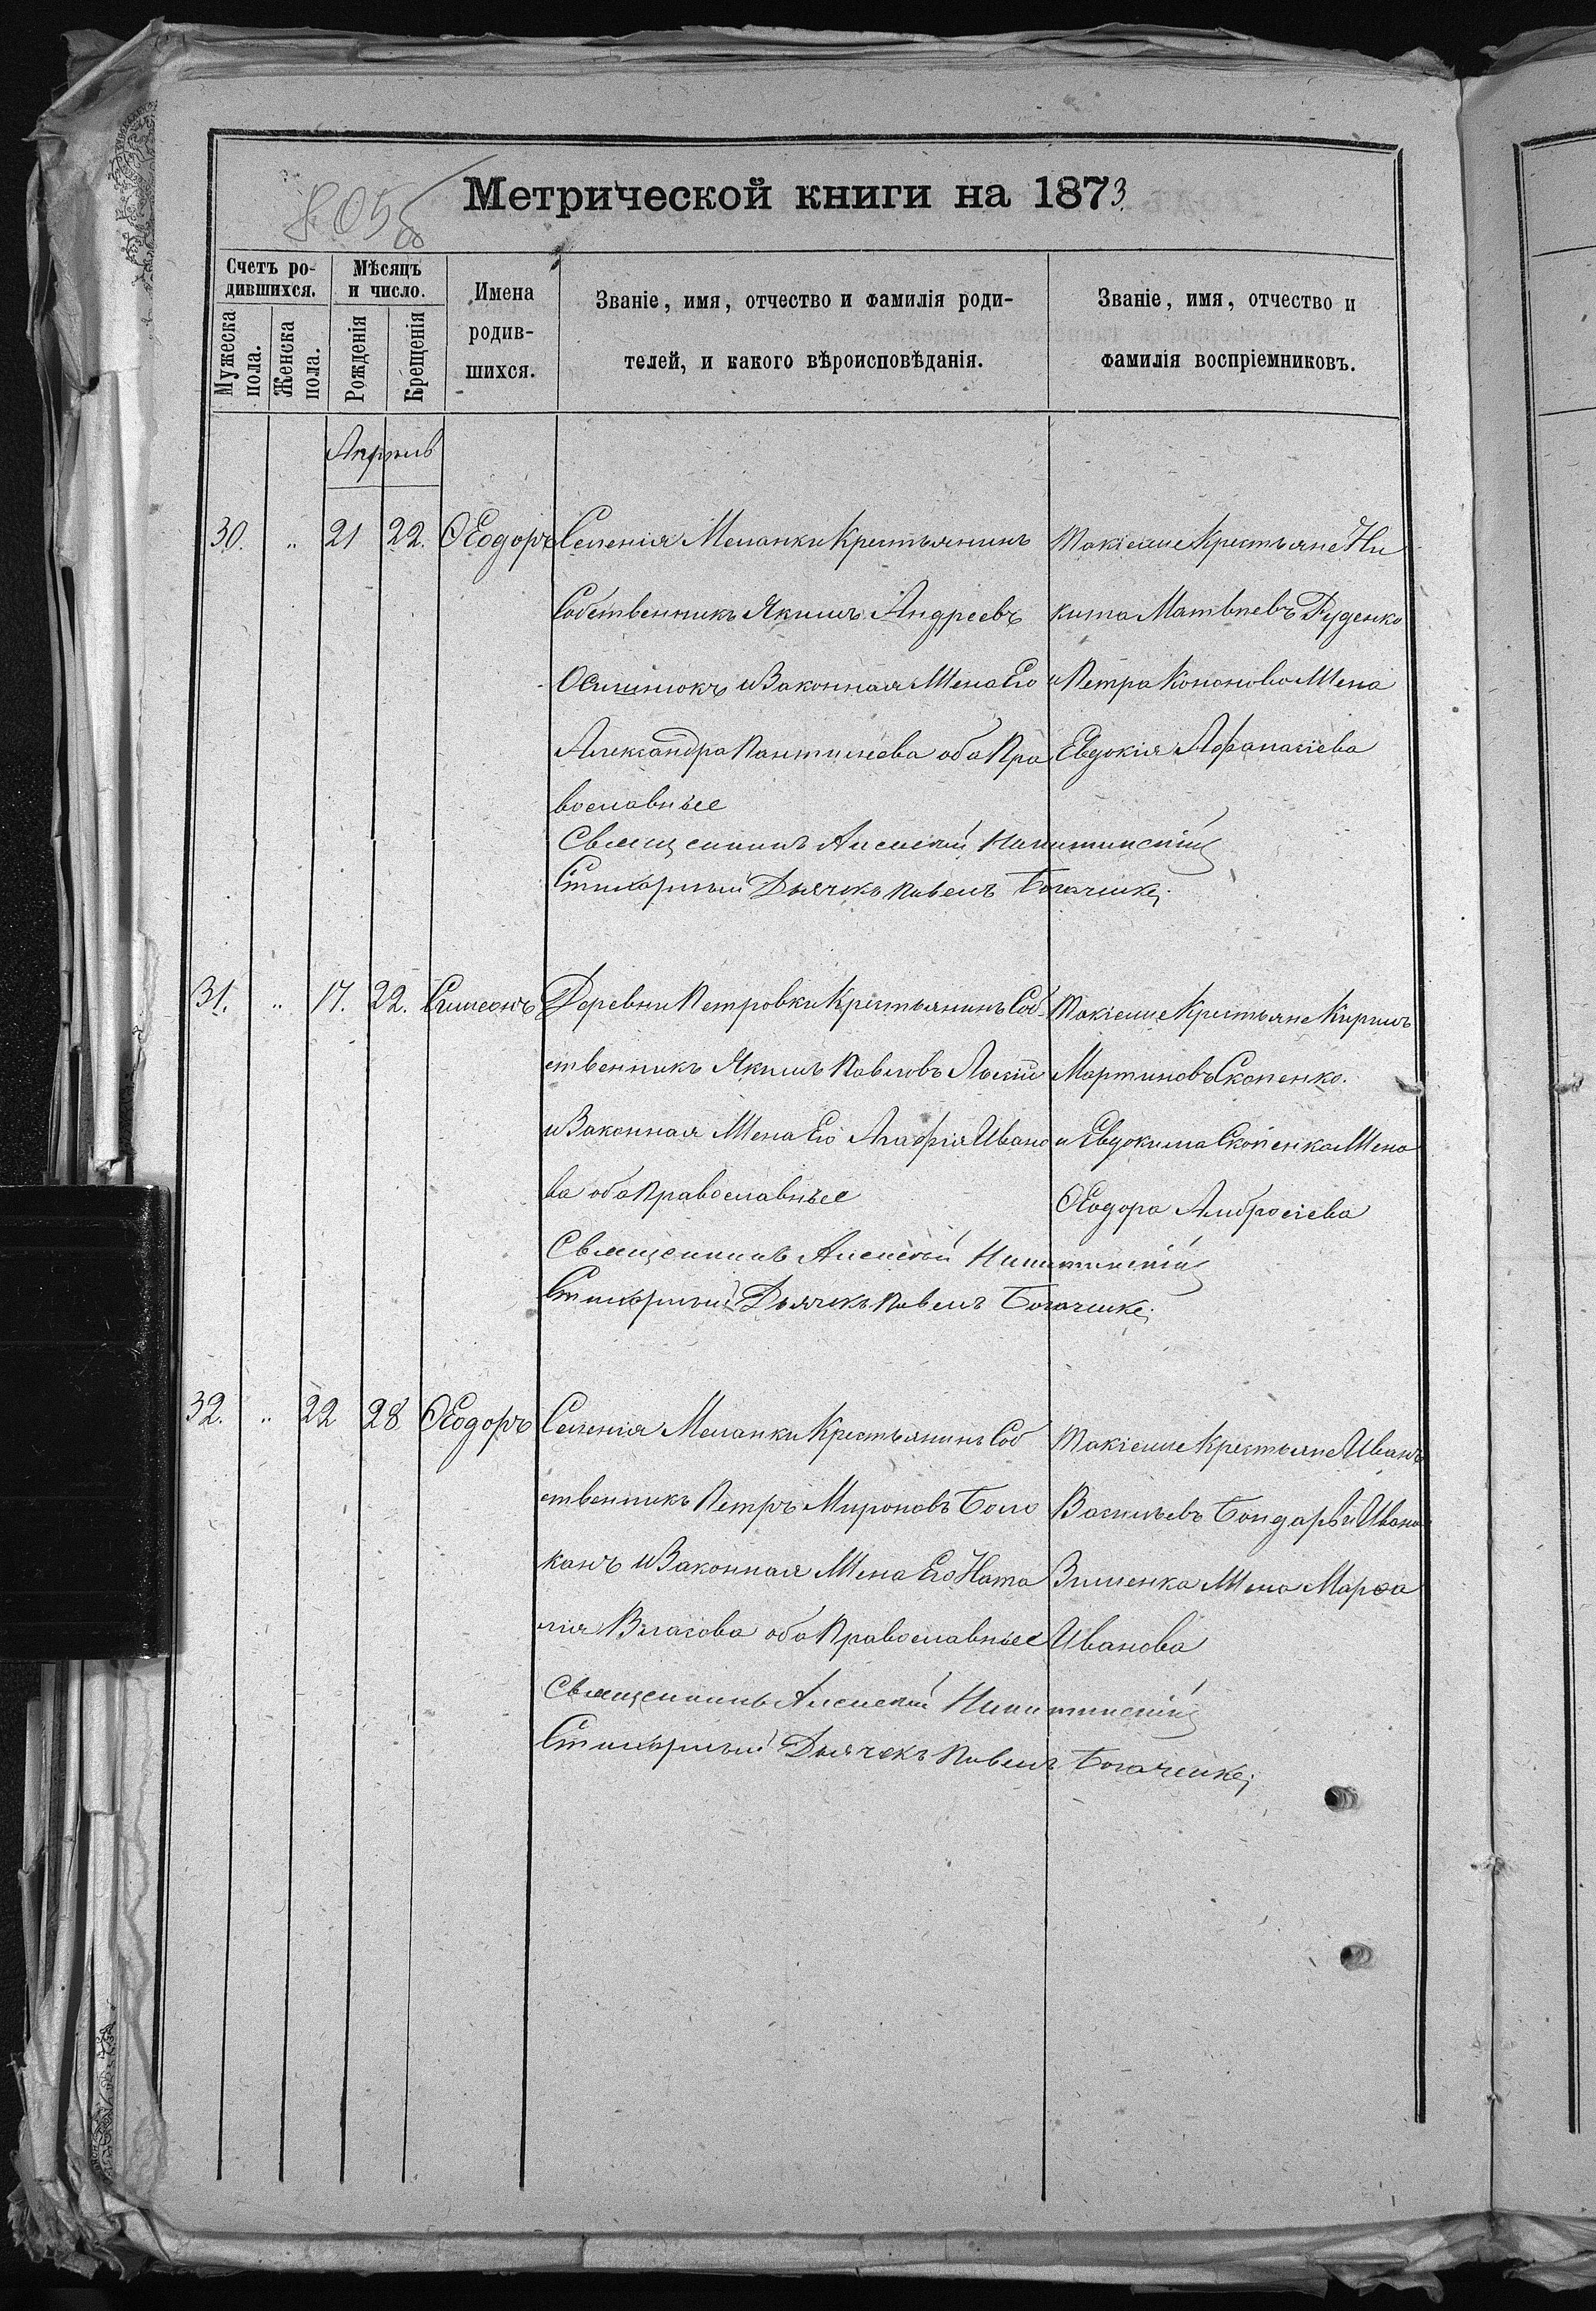 Метрической книги на 1873
Счетъ родившихся.
Мужеска пола.
Женска пола.
Мѣсяцъ и число.
Рожденія
Крещенія
Имена родившихся.
Званіе, имя, отчество и фамилія роди-
телей, и какого вѣроисповѣданія.
Званіе, имя, отчество и
фамилія воспріемниковъ.
Апрѣль
30. „ 21 22. Ѳеодоръ
Селенія Меланки Крестьянинъ
Собственникъ Якимъ Андреевъ
и Законная Жена Его
Александра Пантилѣева оба Пра
вославные
Такіеже Крестьяне Ни
кита Матвѣевъ Руденко
и Петра Кононово Жена
Евдокія Афанасіева
Священникъ Алексѣй Никитинскій
Стихарный Дьячекъ Павелъ
31. „ 17. 22. Симеонъ
Деревни Петровки Крестьянинъ Соб-
ственникъ Якимъ Павловъ
и Законная Жена Его Агафія Ивано
ва оба Православные
Такіеже Крестьяне Кирилъ
Мартиновъ Скопенко.
и Евдокима Скопенка Жена
Ѳеодора Амбросіева
Священникъ Алексѣй Никитинскій
Стихарный Дьячекъ Павелъ
32. „ 22 28 Ѳеодоръ
Селенія Меланки Крестьянинъ Соб
ственникъ Петръ Мироновъ Боло
канъ и Законная Жена Его Ната
лія Власова оба Православные
Такіеже Крестьяне Иванъ
Васильевъ Бондарь и Ивана
Зименка Жена Марѳа
Иванова
Священникъ Алексѣй Никитинскій
Стихарный Дьячекъ Павелъ